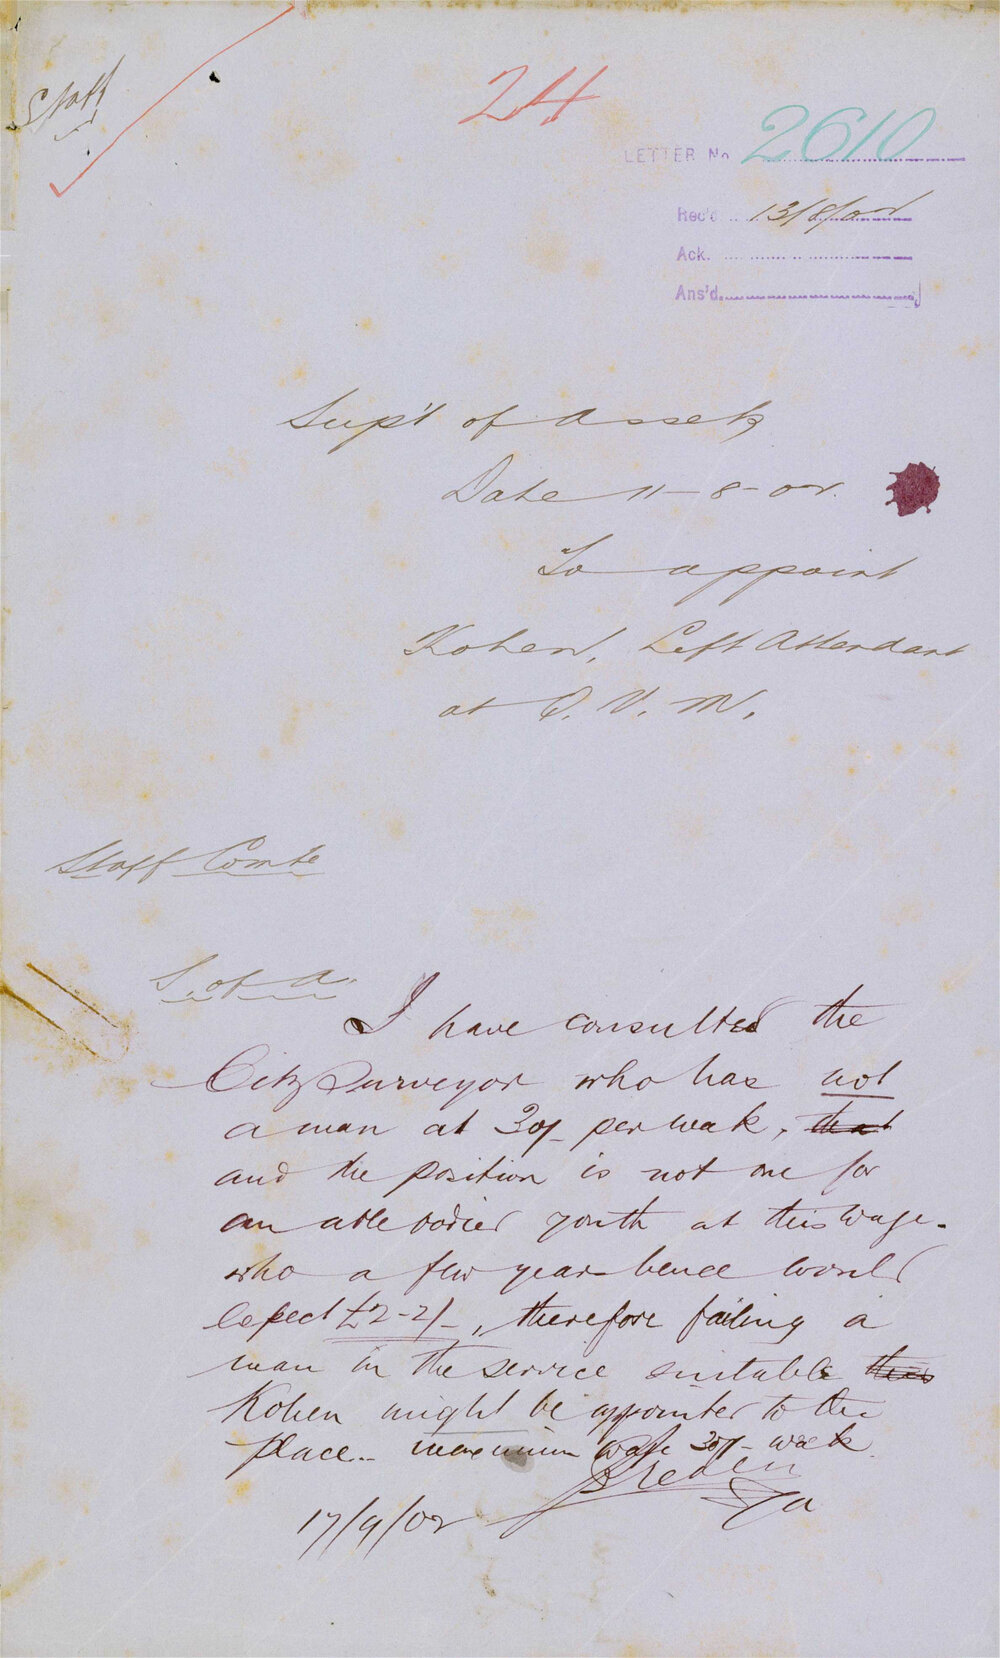 Staff
24
LETTER No 2610
Rec'd 13/8/02
Ack.
Ans'd.
Sup't of Assets
Date 11-8-02.
To appoint
Kohen, Lift Attendant
at Q. V. M.
Staff Comte
S. of A.
I have consulted the
City Surveyor who has not
a man at 30/- per week, that
and the position is not one for
an able bodied youth at this wage.
who a few years hence would
expect £2-2/-, therefore failing a
man in the service suitable this
Kohen might be appointed to the
place.. maximum wage 30/- week
17/9/02